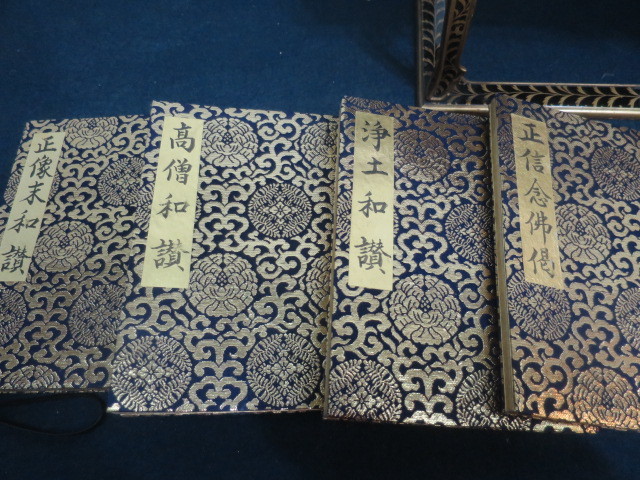 正信念佛偈
浄土和讃
高僧和讃
正像末和讃